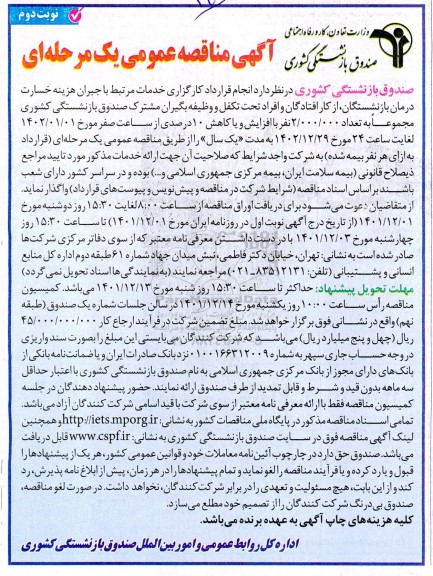 نوبت دوم
وزارت تعاون، کار و رفاه اجتماعی
صندوق بازنشستگی کشوری
آگهی مناقصه عمومی یک مرحله‌ای
صندوق بازنشستگی کشوری در نظر دارد انجام قرارداد کارگزاری خدمات مرتبط با جبران هزینه خسارت
درمان بازنشستگان، از کارافتادگان و افراد تحت تکفل و وظیفه بگیران مشترک صندوق بازنشستگی کشوری
مجموعاً به تعداد ۲/۰۰۰/۰۰۰ نفر با افزایش و یا کاهش ۱۰ درصدی از ساعت صفر مورخ ۱۴۰۲/۰۱/۰۱
لغایت ساعت ۲۴ مورخ ۱۴۰۲/۱۲/۲۹ به مدت «یک سال» را از طریق مناقصه عمومی یک مرحله‌ای (قرارداد
به ازای هر نفر بیمه شده) به شرکت واجد شرایط که صلاحیت آن جهت ارائه خدمات مذکور مورد تایید مراجع
ذیصلاح قانونی (بیمه سلامت ایران، بیمه مرکزی جمهوری اسلامی و...) بوده و در سراسر کشور دارای شعب
باشند بر اساس اسناد مناقصه (شرایط شرکت در مناقصه و پیش‌نویس و پیوست‌های قرارداد) واگذار نماید.
از متقاضیان دعوت می‌شود برای دریافت اوراق مناقصه از ساعت ۸:۰۰ لغایت ۱۵:۳۰ روز دوشنبه مورخ
۱۴۰۱/۱۲/۰۱ (از تاریخ درج آگهی نوبت اول در روزنامه ایران مورخ ۱۴۰۱/۱۲/۰۱) تا ساعت ۱۵:۳۰ روز
چهارشنبه مورخ ۱۴۰۱/۱۲/۰۳ با در دست داشتن معرفی نامه معتبر که از سوی دفاتر مرکزی شرکت‌ها
صادر شده است به نشانی: تهران، خیابان دکتر فاطمی، نبش میدان جهاد شماره ۶۱ طبقه دوم اداره کل منابع
انسانی و پشتیبانی (تلفن: ۸۳۵۱۲۱۳۱-۰۲۱) مراجعه نمایند (به نمایندگی‌ها اسناد تحویل نمی گردد)
مهلت تحویل پیشنهاد: حداکثر تا ساعت ۱۵:۳۰ روز شنبه مورخ ۱۴۰۱/۱۲/۱۳ می‌باشد. کمیسیون
مناقصه رأس ساعت ۱۰:۰۰ روز یکشنبه مورخ ۱۴۰۱/۱۲/۱۴ در سالن جلسات شماره یک صندوق (طبقه
نهم) واقع در نشانی فوق برگزار خواهد شد. مبلغ تضمین شرکت در فرآیند ارجاع کار ۴۵/۰۰۰/۰۰۰/۰۰۰
ریال (چهل و پنج میلیارد ریال) می‌باشد که شرکت کنندگان می‌بایستی این مبلغ را بصورت سند واریزی
در وجه حساب جاری سپهر به شماره ۰۱۰۰۱۶۶۳۱۲۰۰۹ نزد بانک صادرات ایران و یا ضمانت نامه بانکی از
بانک‌های دارای مجوز از بانک مرکزی جمهوری اسلامی به نام صندوق بازنشستگی کشوری با اعتبار حداقل
سه ماهه بدون قید و شرط و قابل تمدید از طرف صندوق ارائه نمایند. حضور پیشنهاد دهندگان در جلسه
کمیسیون مناقصه فقط با ارائه معرفی نامه معتبر از سوی شرکت با قید اسامی شرکت کنندگان آزاد می‌باشد.
تمامی اسناد مناقصه مذکور در پایگاه ملی مناقصات کشور به نشانی: http://iets.mporg.ir و همچنین
لینک آگهی مناقصه فوق در سایت صندوق بازنشستگی کشوری به نشانی: www.cspf.ir قابل دریافت
می‌باشد. صندوق حق دارد در چارچوب آئین نامه معاملات خود و قوانین عمومی کشور، هر یک از پیشنهادها را
قبول و یا رد کرده و یا فرآیند مناقصه را لغو نماید و تمام پیشنهادها را در هر زمان، پیش از ابلاغ نامه پذیرش، رد
کند و از این بابت، هیچ مسئولیت و تعهدی را در برابر شرکت کنندگان، نخواهد داشت. در صورت لغو مناقصه،
صندوق بی‌درنگ شرکت کنندگان را از تصمیم خود مطلع می‌سازد.
کلیه هزینه‌های چاپ آگهی به عهده برنده می‌باشد.
اداره کل روابط عمومی و امور بین الملل صندوق بازنشستگی کشوری